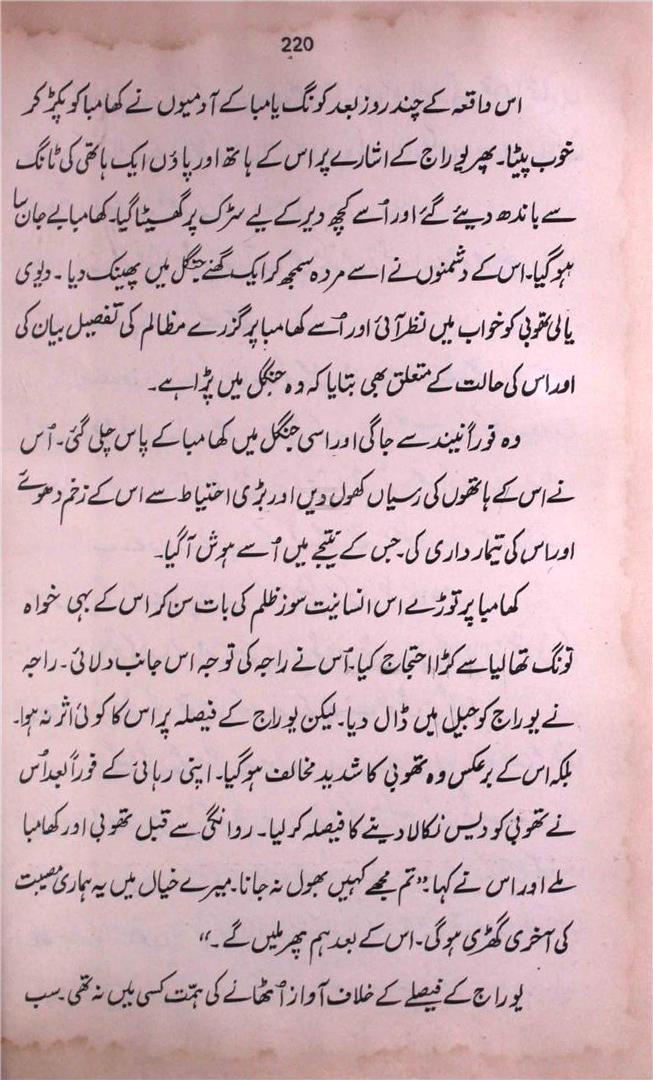 220
اس واقعہ کے چند روز بعد کونگ یامبا کے آدمیوں نے کھامبا کو پکڑ کر
خوب پیٹا۔ پھر یوراج کے اشارے پر اس کے ہاتھ اور پاؤں ایک ہاتھی کی ٹانگ
سے باندھ دیئے گئے اور اُسے کچھ دیر کے لیے سڑک پر گھسیٹا گیا۔ کھامبا بے جان سا
ہو گیا۔ اس کے دشمنوں نے اسے مردہ سمجھ کر ایک گھنے جنگل میں پھینک دیا ۔ دیوی
یالی تھوبی کو خواب میں نظر آئی اور اُسے کھامبا پر گزرے مظالم کی تفصیل بیان کی
اور اس کی حالت کے متعلق بھی بتایا کہ وہ جنگل میں پڑا ہے۔
وہ فوراً نیند سے جاگی اور اسی جنگل میں کھامبا کے پاس چلی گئی۔ اُس
نے اس کے ہاتھوں کی رسیاں کھول دیں اور بڑی احتیاط سے اس کے زخم دھوئے
اور اس کی تیمارداری کی۔ جس کے نتیجے میں اُسے ہوش آگیا۔
کھامبا پر توڑے اس انسانیت سوز ظلم کی بات سن کر اس کے بہی خواہ
تونگ تھالیا سے کڑا احتجاج کیا۔ اُس نے راجہ کی توجہ اس جانب دلائی۔ راجہ
نے یوراج کو جیل میں ڈال دیا۔ لیکن یوراج کے فیصلہ پر اس کا کوئی اثر نہ ہوا۔
بلکہ اس کے برعکس وہ تھوبی کا شدید مخالف ہو گیا۔ اپنی رہائی کے فوراً بعد اُس
نے تھوبی کو دیس نکالا دینے کا فیصلہ کر لیا۔ روانگی سے قبل تھوبی اور کھامبا
ملے اور اس نے کہا۔ ”تم مجھے کہیں بھول نہ جانا۔ میرے خیال میں یہ ہماری مصیبت
کی آخری گھڑی ہوگی۔ اس کے بعد ہم پھر ملیں گے ۔“
یوراج کے فیصلے کے خلاف آواز اُٹھانے کی ہمّت کسی میں نہ تھی۔ سب